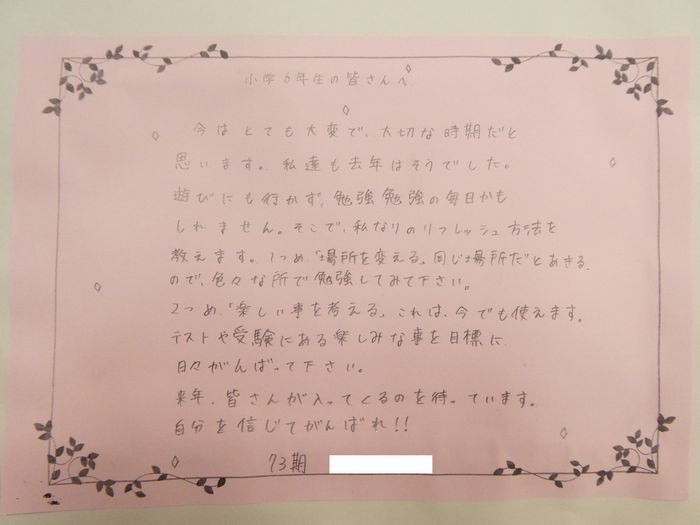 小学6年生の皆さんへ
今はとても大変で、大切な時期だと
思います。私達も去年はそうでした。
遊びにも行かず、勉強勉強の毎日かも
しれません。そこで、私なりのリフレッシュ方法を
教えます。1つめ、「場所を変える」同じ場所だとあきる
ので、色々な所で勉強してみて下さい。
2つめ、「楽しい事を考える」これは、今でも使えます。
テストや受験にある楽しみな事を目標に
日々がんばって下さい。
来年、皆さんが入ってくるのを待っています。
自分を信じてがんばれ!!
73期